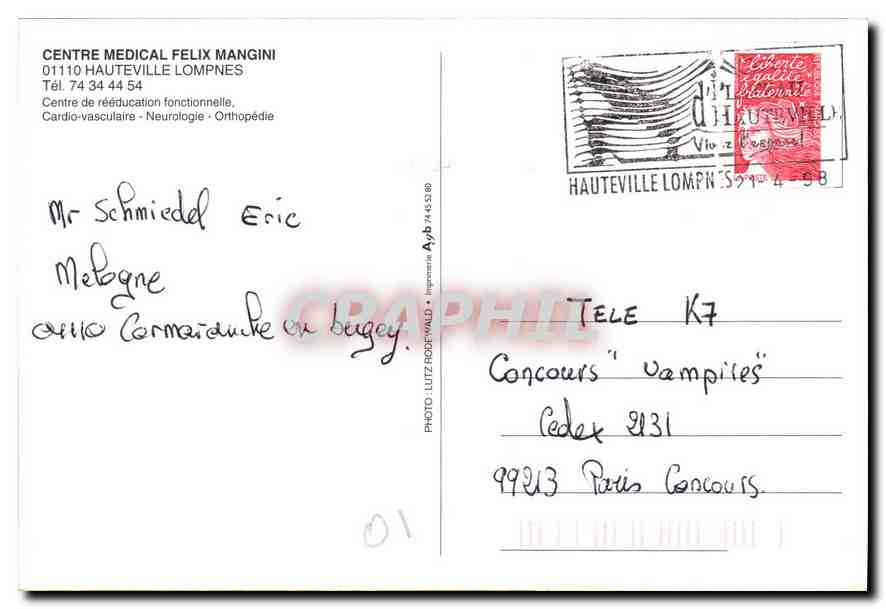 CENTRE MEDICAL FELIX MANGINI
01110 HAUTEVILLE LOMPNES
Tél. 74 34 44 54
Centre de rééducation fonctionnelle,
Cardio-vasculaire - Neurologie - Orthopédie
Mr Schmiedel Eric
Melogne
01110 en bugey.
01
PHOTO : LUTZ RODEWALD • Imprimerie Agb 74 45 52 80
CPARPHIL
liberté
égalité
fraternité
LA POSTE
d'HAUTEVILLE
HAUTEVILLE LOMPNES 21-4-98
TELE K7
Concours "Vampires"
Cedex 2131
99213 Paris Concours.